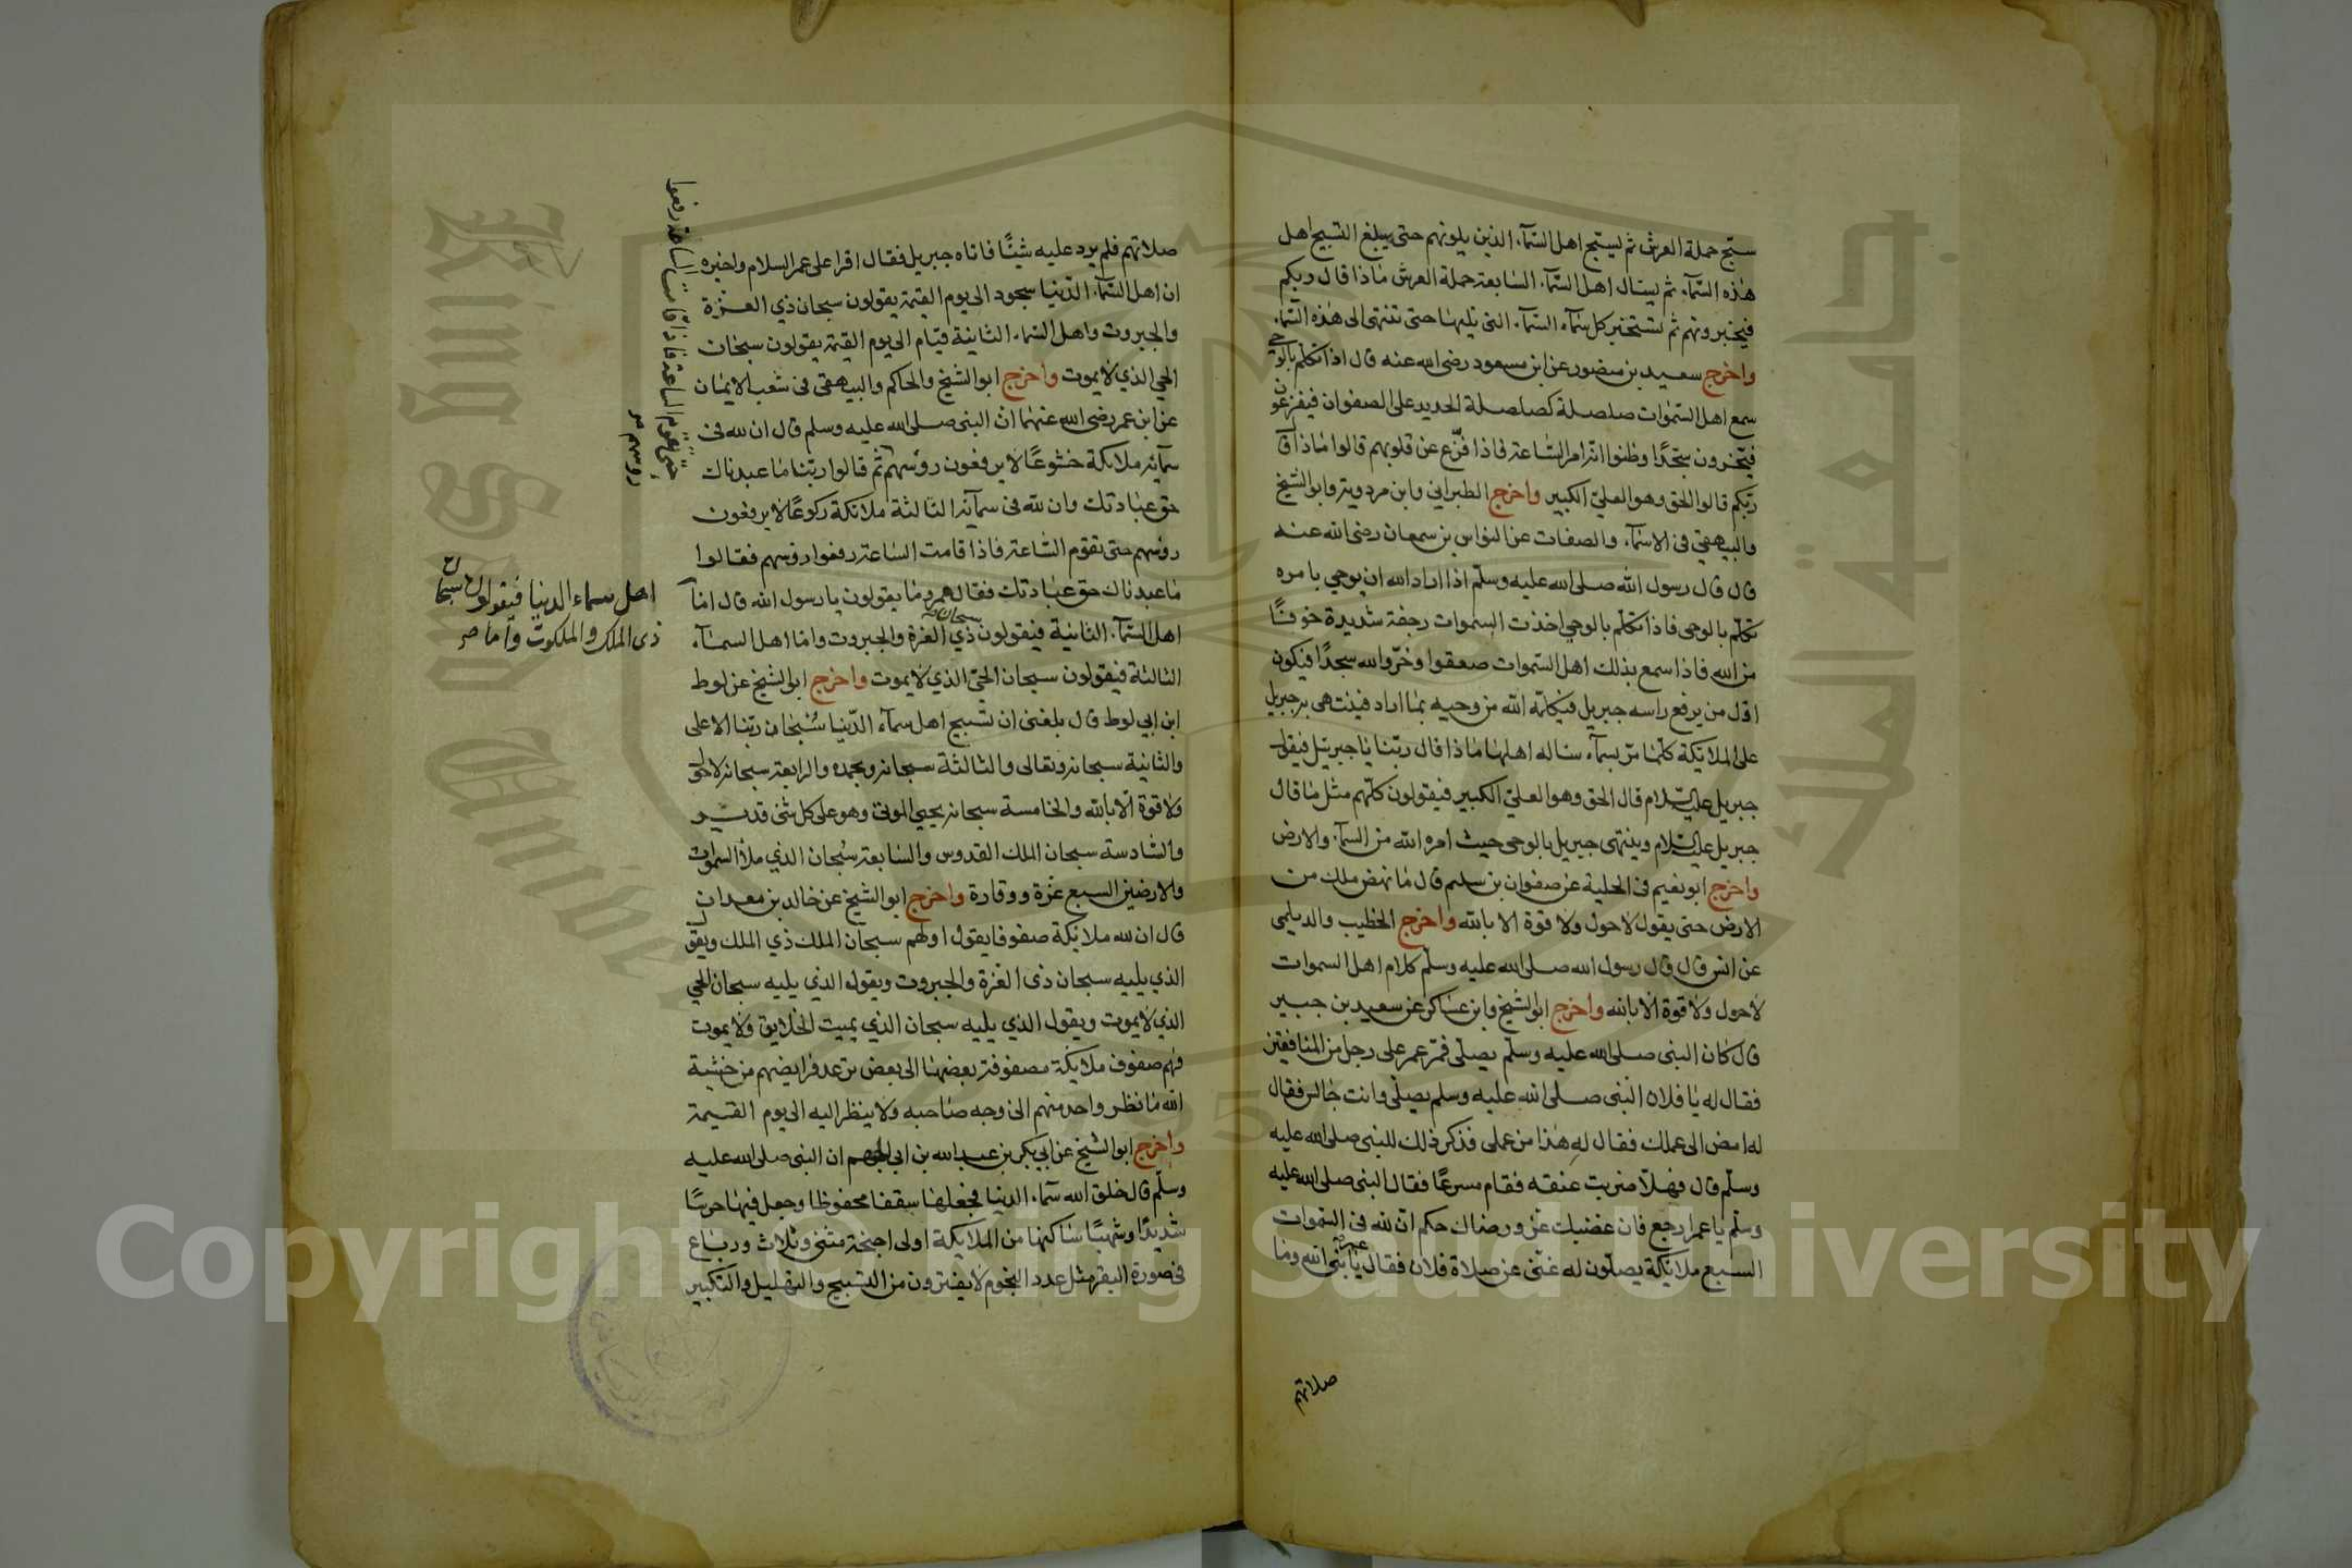 سبّح حملة العرش ثم ليسبّح اهل السّمآء الذين يلونهم حتى يبلغ التسبيح اهل
هذه السّمآء ثم يسال اهل السّمآء السّابعة حملة العرش ماذا قال ربكم
فيخبرونهم ثم تستخبر كل سمآء السّمآء التى تليها حتى تنتهى الى هذه السّمآء
واخرج سعيد بن منصور عن ابن مسعود رضى الله عنه قال اذا تكلم بالوحى
سمع اهل السّموات صلصلة كصلصلة الحديد على الصفوان فيفزعون
فيخرون سجّدًا وظنوا انه امر السّاعة فاذا فزّع عن قلوبهم قالوا ماذا قا
ربّكم قالوا الحق وهو العليّ الكبير واخرج الطبراني وابن مردويه وابو الشيخ
والبيهقي في الاسمآء والصفات عن النواس بن سمعان رضى الله عنه
قال قال رسول الله صلى الله عليه وسلّم اذا اراد الله ان يوحي بامره
تكلّم بالوحى فاذا تكلّم بالوحي اخذت السموات رجفة شديدة خوفًا
من الله فاذا سمع بذلك اهل السّموات صعقوا وخرّوا لله سجدًا فيكون
اوّل من يرفع راسه جبريل فيكلمه الله من وحيه بما اراد فينتهى به جبريل
على الملائكة كلّما مرّ بسمآء ساله اهلها ماذا قال ربّنا يا جبريل فيقول
جبريل عليه السّلام قال الحق وهو العليّ الكبير فيقولون كلّهم مثل ما قال
جبريل عليه السّلام وينتهى جبريل بالوحى حيث امره الله من السّمآء والارض
واخرج ابو نعيم في الحلية عن صفوان بن سليم قال ما نهض ملك من
الارض حتى يقول لا حول ولا قوة الا بالله واخرج الخطيب والديلمي
عن انس قال قال رسول الله صلى الله عليه وسلّم كلام اهل السموات
لا حول ولا قوة الا بالله واخرج ابو الشيخ وابن عساكر عن سعيد بن جبير
قال كان النبى صلى الله عليه وسلّم يصلّى فمرّ عمر على رجل من المنافقين
فقال له يا فلان النبى صلى الله عليه وسلم يصلّي وانت جالس فقال
له امض الى عملك فقال له هذا من عملى فذكر ذلك للنبى صلى الله عليه
وسلّم قال فهلا ضربت عنقه فقام مسرعًا فقال النبى صلى الله عليه
وسلّم يا عمر ارجع فان غضبك عز ورضاك حكم انّ لله في السّموات
السبع ملائكة يصلّون له غنّى عن صلاة فلان فقال عمر يا نبّي الله وما
صلاتهم
صلاتهم فلم يرد عليه شيئًا فاتاه جبريل فقال اقرا على عمر السلام واخبره
ان اهل السّمآء الدّنيا سجود الى يوم القيمة يقولون سبحان ذي العزة
والجبروت واهل السّماء الثانية قيام الى يوم القيمة يقولون سبحان
الحي الذي لا يموت واخرج ابو الشيخ والحاكم والبيهقي في شعب الايمان
عن ابن عمر رضى الله عنهما انّ النبى صلى الله عليه وسلم قال ان لله في
سمآئه ملائكة خشوعًا لا يرفعون رؤسهم ثم قالوا ربّنا ما عبدناك
حتى تقوم الساعة فاذا قامت الساعة رفعوا
رؤسهم صح
حق عبادتك وان لله في سمآئه الثالثة ملائكة ركوعًا لا يرفعون
رؤسهم حتى تقوم السّاعة فاذا قامت السّاعة رفعوا رؤسهم فقالوا
ما عبدناك حق عبادتك فقال عمر وما يقولون يا رسول الله قال امّا
اهل سماء الدنيا فيقولون سبحان
ذى الملك والملكوت واما صح
اهل السّمآء الثانية فيقولون سبحان ذي العزة والجبروت واما اهل السمآء
الثالثة فيقولون سبحان الحيّ الذي لا يموت واخرج ابو الشيخ عن لوط
ابن ابي لوط قال بلغنى ان تسبيح اهل سمآء الدّنيا سُبحان ربّنا الاعلى
والثانية سبحانه وتعالى والثالثة سبحانه وبحمده والرابعة سبحانه لا حول
ولا قوة الا بالله والخامسة سبحانه يحيي الموتى وهو على كل شئ قدير
والسّادسة سبحان الملك القدوس والسّابعة سُبحان الذي ملأ السموات
والارضين السبع عزة ووقارة واخرج ابو الشيخ عن خالد بن معدان
قال ان لله ملائكة صفوفا يقول اولهم سبحان الملك ذي الملك ويقول
الذي يليه سبحان ذى العزة والجبروت ويقول الذي يليه سبحان الحي
الذي لا يموت ويقول الذي يليه سبحان الذي يميت الخلايق ولا يموت
فهم صفوف ملايكة مصفوفة بعضها الى بعض ترعد فرايضهم من خشية
الله ما نظر واحد منهم الى وجه صاحبه ولا ينظر اليه الى يوم القيمة
واخرج ابو الشيخ عن ابي بكر بن عبد الله بن ابي الجهم ان النبى صلى الله عليه
وسلّم قال خلق الله سمآء الدنيا فجعلها سقفا محفوظا وجعل فيها حرسًا
شديدًا وشهبًا ساكنها من الملايكة اولى اجنحة مثنى وثلاث ورباع
في صورة البقر مثل عدد النجوم لا يفترون من التسبيح والتهليل والتكبير
King Saud University
جامعة الملك
Copyright © King Saud University